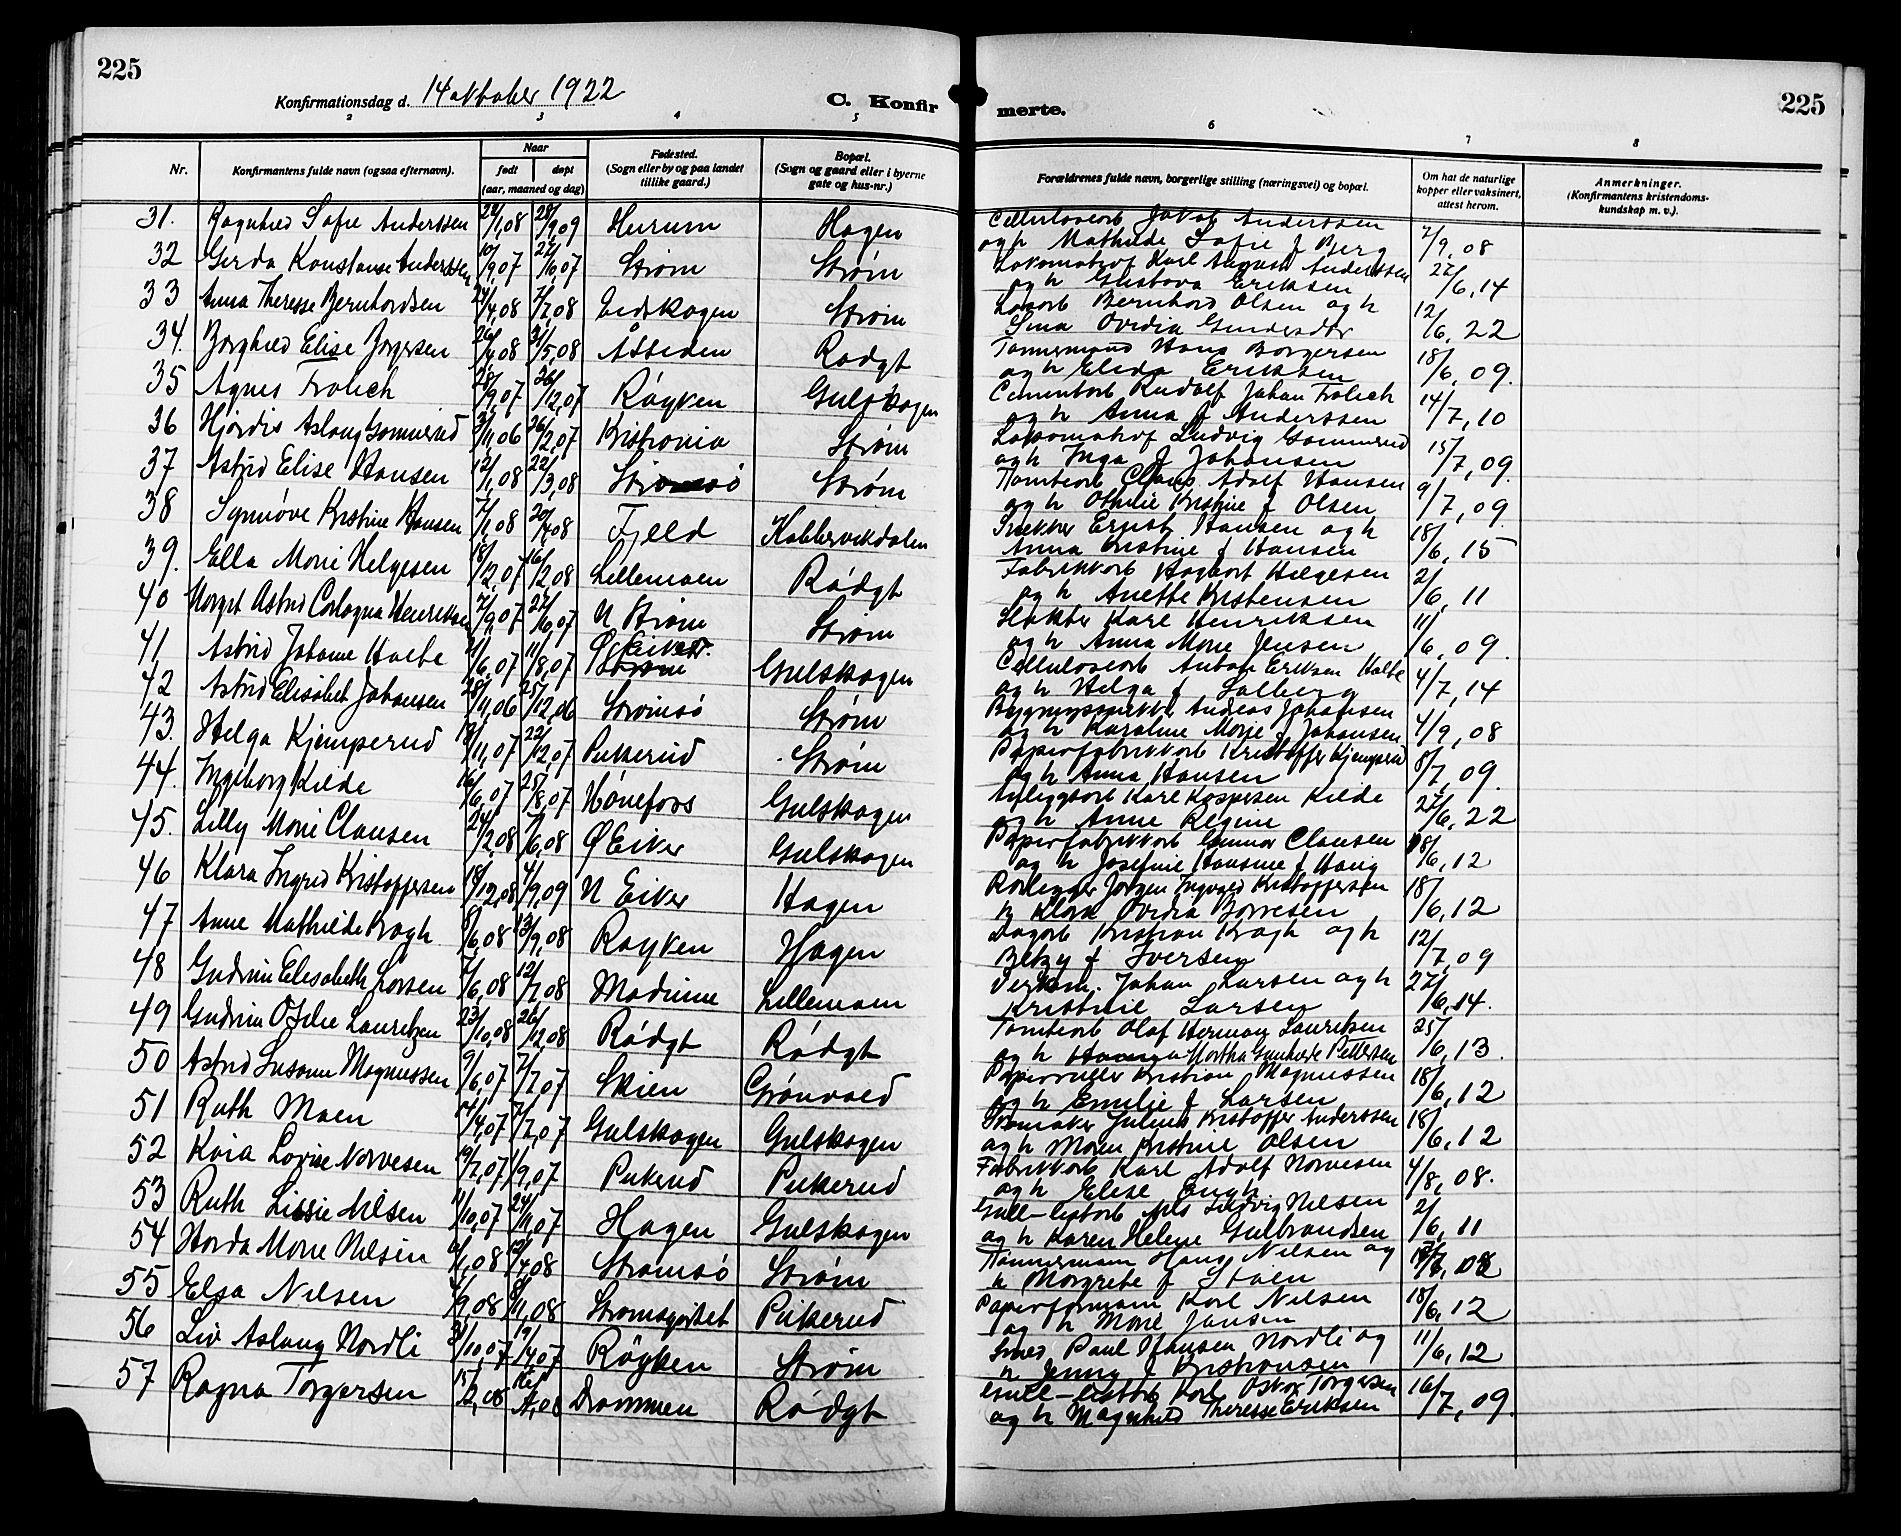 225
Konfirmationsdag d. 14 oktober 1922
C. Konfir
merte.
225
2 3 4 5 6 7 8
Nr. Konfirmantens fulde navn (ogsaa efternavn). Naar født døpt (aar, maaned og dag) Fødested. (Sogn eller by og paa landet tillike gaard.) Bopæl. (Sogn og gaard eller i byerne gate og hus-nr.) Forældrenes fulde navn, borgerlige stilling (næringsvei) og bopæl. Om hat de naturlige kopper eller vaksinert, attest herom. Anmerkninger. (Konfirmantens kristendoms-kundskap m. v.).
31. Ragnhild Sofie Anderssen 22/1,08 28/9,09 Hurum Hagen Cellulosearb Jakob Anderssen
og h Mathilde Sofie f Berg 2/9,08
32 Gerda Konstanse Anderssen 10/9,07 27/10,07 Strøm Strøm Lokomotivf Karl August Anderssen
og h Gustava Eriksen 22/6,14
33 Anna Therese Bernhardsen 24/4,08 7/7,08 Eidskogen Strøm Løsarb Bernhard Olsen og h
Sina Ovidia Gundersdtr 12/6,22
34. Borghild Elise Borgersen 26/4,08 31/5,08 Åssiden Rødgt Tømmermand Hans Borgersen
og h Elida Eriksen 18/6,09.
35 Agnes Frolich 28/9,07 26/12,07 Røyken Gulskogen Cementarb Rudolf Johan Frolich
og h Anna f Anderssen 14/7,10
36 Hjørdis Aslaug Gommerud 3/11,06 26/2,07 Kristiania Strøm Lokomotivf Ludvig Gommerud
og h Inga f Johansen 15/7,09.
37 Astrid Elise Hansen 12/1,08 22/3,08 Strømsø Strøm Tomtearb Claus Adolf Hansen
og h Othilie Kristine f Olsen 9/7,09
38 Synnøve Kristine Hansen 7/1,08 20/4,08 Fjeld Kobbervikdalen Snekker Ernst Hansen og h
Anna Kristine f Hansen 18/6,15
39. Ella Marie Helgesen 18/12,07 16/2,08 Lillemoen Rødgt Fabrikkarb Hagbart Helgesen
og h Anette Kristensen 2/6,11
40 Margit Astrid Henriksen 7/9,07 27/10,07 N Strøm Strøm Slakter Karl Henriksen
og h Anna Marie Jensen 11/6,09.
41 Astrid Johanne Holbe 11/6,07 11/8,07 Ø Eiker Gulskogen Cellulosearb Anton Eriksen Holbe
og h Helga f Solberg 4/7,14
42 Astrid Elisabet Johansen 28/11,06 25/12,06 Strømsø Strøm Bygningssnekker Andreas Johansen
og h Karoline Marie f Johansen 4/9,08
43. Helga Kjemperud 18/11,07 22/12,07 Pukerud Strøm Papirfabrikkarb Kristoffer Kjemperud
og h Anna Hansen 8/7,09.
44. Ingeborg Kilde 16/6,07 25/8,07 Hønefoss Gulskogen Karl Kaspersen Kilde
og h Anne Regine 27/6,22
45. Lilly Marie Clausen 24/2,08 7/6,08 Ø Eiker Gulskogen Papirfabrikkarb Gunnar Clausen
og h Josefine Hansine f Haug 18/6,12
46 Klara Ingrid Kristoffersen 18/12,08 4/9,09 N Eiker Hagen Rørlegger Jørgen Ingvald Kristoffersen
h Klara Ovidia Borresen 18/6,12
47 Anne Mathilde Kragh 8/6,08 13/9,08 Røyken Hagen Dagarb Kristian Kragh og h
Betzy f Iversen 12/7,09
48 Gudrun Elisabeth Larsen 7/6,08 12/7,08 Modum Lillemoen Verksm. Johan Larsen og h
Kristine Larsen 27/6,14.
49 Gudrun Lauritzen 23/10,08 26/12,08 Rødgt Rødgt Tomtearb Olaf Herman Lauritzen
og h Martha Gunhilde Pettersen 25/6,13.
50 Astrid Susanne Magnussen 9/6,07 7/7,07 Skien Grønvold Papirruller Kristian Magnussen
og h Emilie f Larsen 18/6,12
51 Ruth Moen 14/4,07 7/7,07 Gulskogen Gulskogen Skomaker Julius Kristoffer Anderssen
og h Maren Kristine Olsen 18/6,12
52 Kaia Lovise Norvesen 19/7,07 1/9,07 Pukerud Pukerud Fabrikkarb Karl Adolf Norvesen
og h Elise Engh 4/8,08.
53 Ruth Lissie Nilsen 11/10,07 24/11,07 Hagen Gulskogen Gull-listarb Nils Ludvig Nilsen
og h Karen Helene Gulbrandsen 2/6,11
54 Horda Marie Nilsen 6/1,08 12/4,08 Strømsø Strøm Tømmermann Hans Nilsen og
h Margrete f Støen
55 Elsa Nilsen 4/9,08 8/11,08 Strømsgodset Pukerud Papirformann Karl Nilsen
og h Marie Jansen 18/6,12
56 Liv Aslaug Nordli 31/10,07 19/4,07 Røyken Strøm Smed Paul Nordli og
h Jenny f Kristiansen 11/6,12
57 Ragna Torgersen 15/2,08 Drammen Rødgt Gull-listarb Karl Oskar Torgersen
og h Magnhild Therese Eriksen 16/7,09.